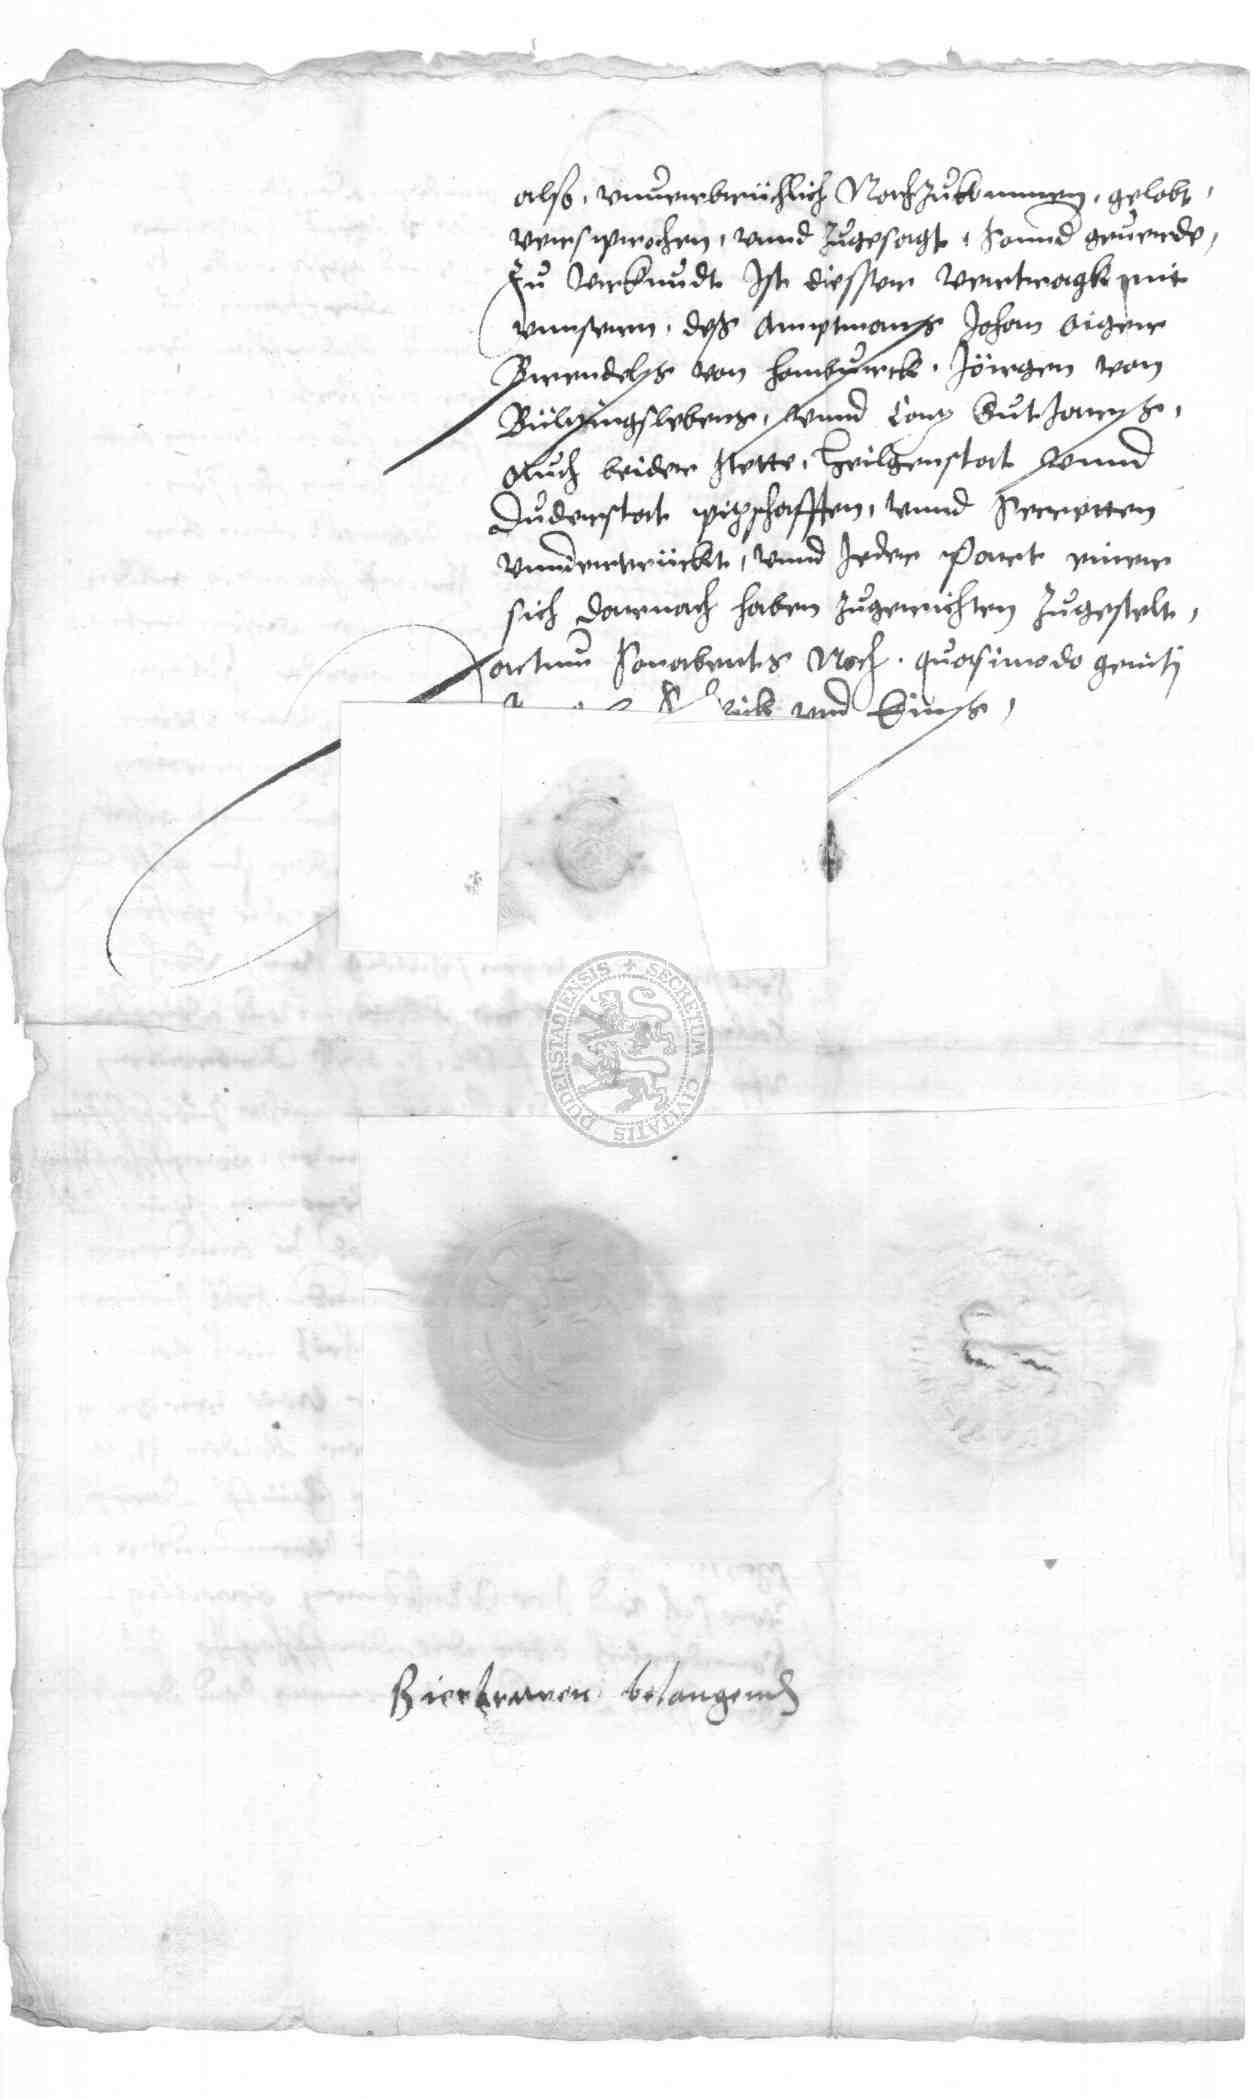 also, vnuerbruchlich Nachzukommen, gelobt,
versprochen, vnnd zugesagt, sonnd geuerde,
Zu vrkundt Ist diesser vertragk mit
vnnsern, deß Amptmans Johan Aigen
Brendels von homburck, Jörgen von
Bültzingslebens, vnnd
Auch beider stette, Heilgenstat vnnd
Duderstat pitzschafften, vnnd Secreten
vnndertrückt, vnnd Jeder Part einer
sich darnach haben zugerichten zugestelt,
actum Sonabents Noch quasimodo geniti
vnd
SECRETUM CIVITATIS DUDERSTADIENSIS
Bierbrawen belangend